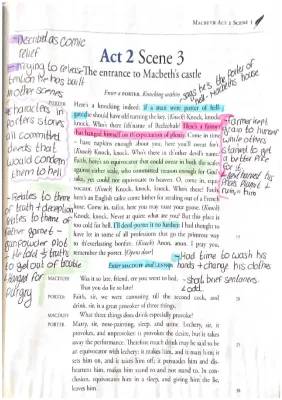 MACBETH ACT 2 SCENE 3
Act 2 Scene 3
The entrance to Macbeth's castle
Enter a PORTER. Knocking within
PORTER
Here's a knocking indeed: if a man were porter of hell-
gate, he should have old turning the key. (Knock) Knock, knock,
knock. Who's there i'th'name of Beelzebub? Here's a farmer
that hanged himself on th'expectation of plenty. Come in time
– have napkins enough about you, here you'll sweat for't.
(Knock) Knock, knock. Who's there in th'other devil's name?
Faith, here's an equivocator that could swear in both the scales
against either scale, who committed treason enough for God's
sake, yet could not equivocate to heaven. O, come in, equi-
vocator. (Knock) Knock, knock, knock. Who's there? Faith
here's an English tailor come hither for stealing out of a French
hose. Come in, tailor, here you may roast your goose. (Knock)
Knock, knock. Never at quiet: what are you? But this place is
too cold for hell. I'll devil-porter it no further: I had thought to
have let in some of all professions that go the primrose way
to th'everlasting bonfire. (Knock) Anon, anon. I pray you,
remember the porter. (Opens door)
Enter MACDUFF and LENNOX
MACDUFF
Was it so late, friend, ere you went to bed,
That you do lie so late?
PORTER
Faith, sir, we were carousing till the second cock, and
drink, sir, is a great provoker of three things.
MACDUFF
What three things does drink especially provoke?
PORTER
Marry, sir, nose-painting, sleep, and urine. Lechery, sir, it
provokes, and unprovokes: it provokes the desire, but it takes
away the performance. Therefore much drink may be said to be
an equivocator with lechery: it makes him, and it mars him; it
sets him on, and it takes him off; it persuades him and dis-
heartens him, makes him stand to and not stand to. In con-
clusion, equivocates him in a sleep, and giving him the lie,
leaves him.
- Described as comic
relief
- Trying to release
tension he has built
in other scenes
characters in
porters stories
all committed
deeds that
would condemn
them to hell
- Relates to theme
of truth + deception
- gunpowder plot
to get out of trouble
- Hanged for
says he's the porter of
hell - Macbeth's house
grain to humour
while others
to get
a better price
for it
- Had time to wash his
hands + change his clothes
- short, blunt sentences
- odd.